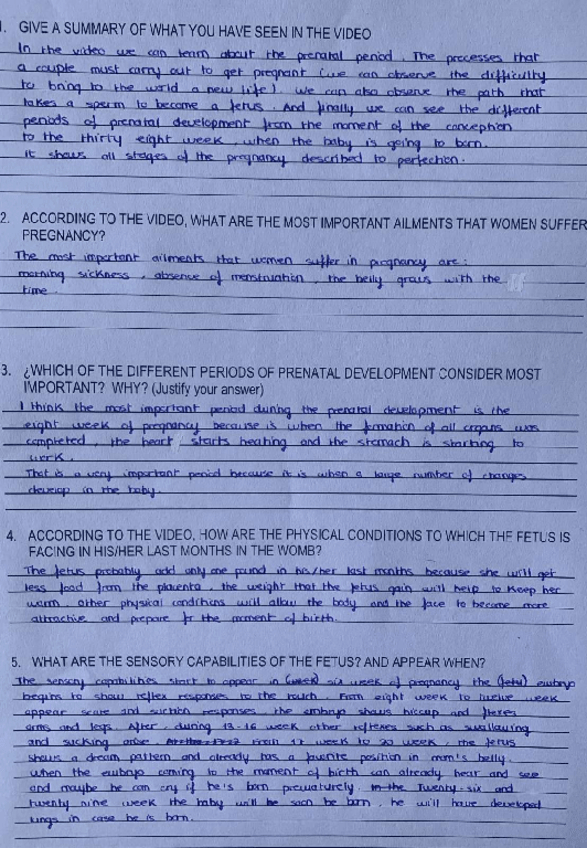 1. GIVE A SUMMARY OF WHAT YOU HAVE SEEN IN THE VIDEO
In the video we can learn about the prenatal period. The processes that
a couple must carry out to get pregnant (we can observe the difficulty
to bring to the world a new life). We can also observe the path that
takes a sperm to become a fetus. And finally we can see the different
periods of prenatal development from the moment of the conception
to the thirty eight week, when the baby is going to born.
It shows all stages of the pregnancy described to perfection.
2. ACCORDING TO THE VIDEO, WHAT ARE THE MOST IMPORTANT AILMENTS THAT WOMEN SUFFER
PREGNANCY?
The most important ailments that women suffer in pregnancy are:
morning sickness, absence of menstruation, the belly grows with the
time.
3. ¿WHICH OF THE DIFFERENT PERIODS OF PRENATAL DEVELOPMENT CONSIDER MOST
IMPORTANT? WHY? (Justify your answer)
I think the most important period during the prenatal development is the
eight week of pregnancy because is when the formation of all organs was
completed, the heart starts beating and the stomach is starting to
work.
That is a very important period because it is when a large number of changes
develop in the baby.
4. ACCORDING TO THE VIDEO, HOW ARE THE PHYSICAL CONDITIONS TO WHICH THE FETUS IS
FACING IN HIS/HER LAST MONTHS IN THE WOMB?
The fetus probably add only one pound in his/her last months because she will get
less food from the placenta, the weight that the fetus gain will help to keep her
warm. Other physical conditions will allow the body and the face to become more
attractive and prepare for the moment of birth.
5. WHAT ARE THE SENSORY CAPABILITIES OF THE FETUS? AND APPEAR WHEN?
The sensory capabilities start to appear in (week) six week of pregnancy the (fetu) embryo
begins to show reflex responses to the touch. From eight week to twelve week
appear scare and suction responses, the embryo shows hiccup and flexes
arms and legs. After, during 13-16 week other reflexes such as swallowing
and sucking arise. From 17 week to 20 week, the fetus
shows a dream pattern and already has a favorite position in mom's belly.
When the embryo coming to the moment of birth can already hear and see
and maybe he can cry if he's born prematurely. In the Twenty-six and
twenty nine week the baby will be soon be born, he will have developed
lungs in case he is born.